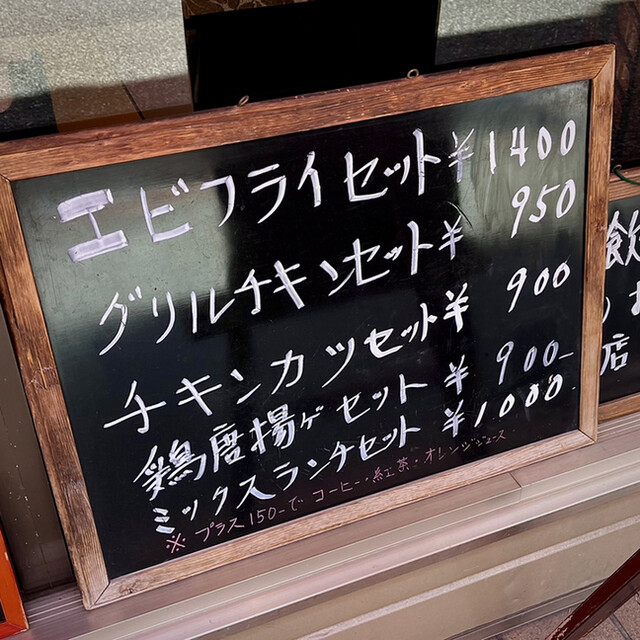 エビフライセット ¥1400
グリルチキンセット ¥950
チキンカツセット ¥900
鶏唐揚ゲセット ¥900-
ミックスランチセット ¥1000.
※プラス150-でコーヒー・紅茶・オレンジジュース
店